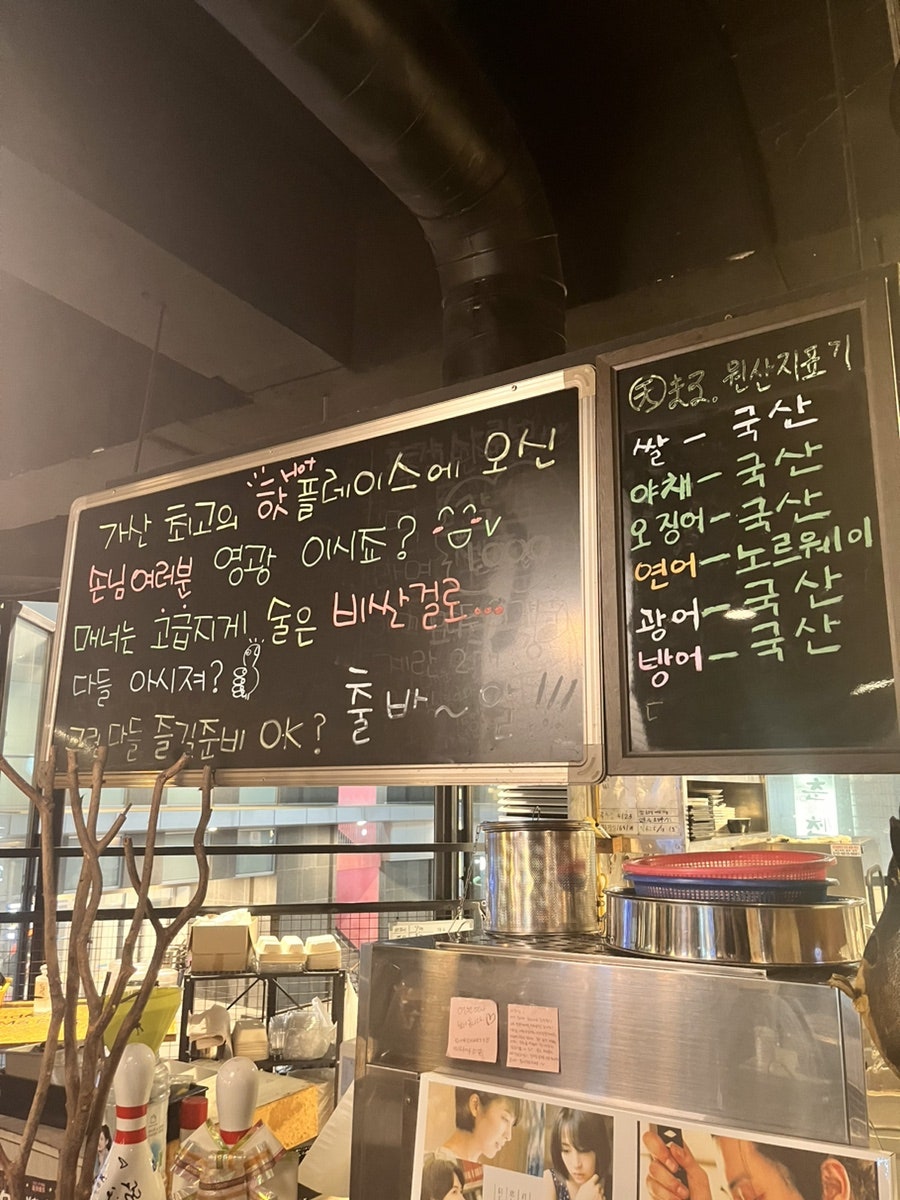 가산 최고의 핫 Hot 플레이스에 오신
손님 여러분 영광 이시죠?
매너는 고급지게 술은 비싼걸로...
다들 아시져?
그럼 다들 즐길준비 OK? 출바~알!!!
天まる。원산지표기
쌀 - 국산
야채 - 국산
오징어 - 국산
연어 - 노르웨이
광어 - 국산
방어 - 국산